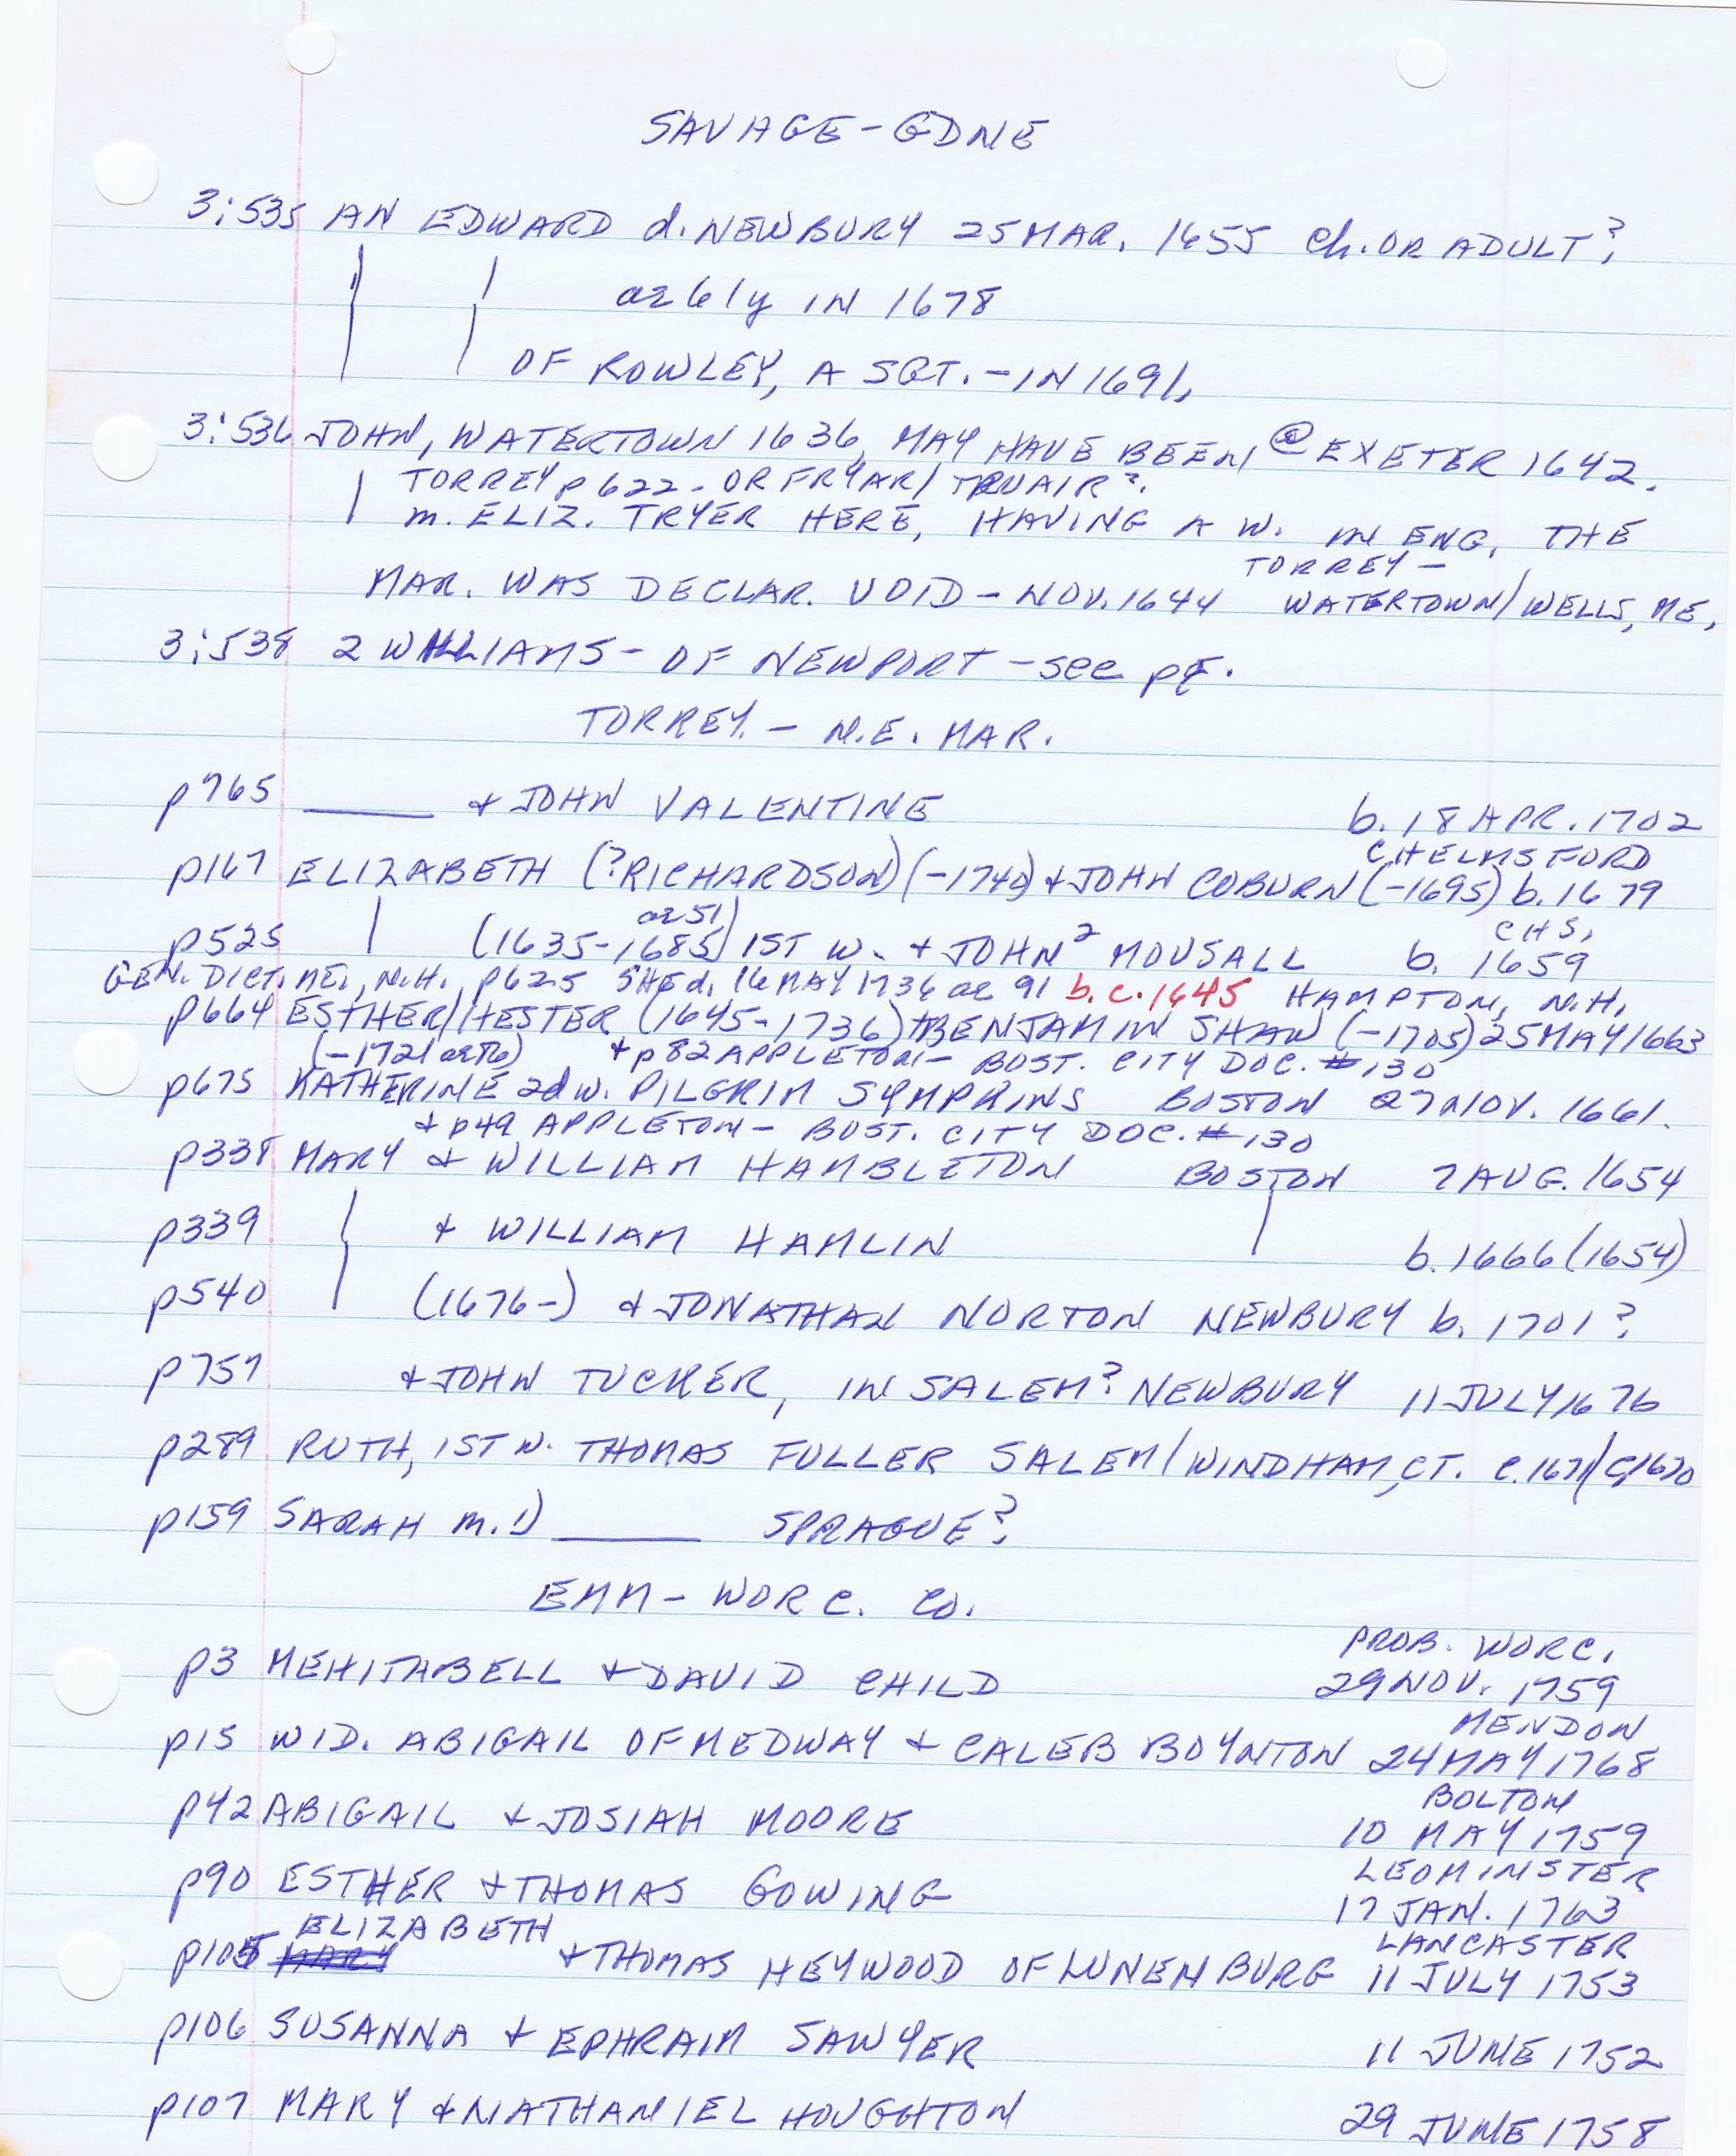 SAVAGE - GDNE
3:535 AN EDWARD d. NEWBURY 25 MAR. 1655 Ch. OR ADULT?
ae 61y IN 1678
OF ROWLEY, A SGT. - IN 1691,
3:536 JOHN, WATERTOWN 1636, MAY HAVE BEEN @ EXETER 1642.
TORREY p 622 - OR FRYAR/TRUAIR?
m. ELIZ. TRYER HERE, HAVING A W. IN ENG, THE
TORREY -
MAR. WAS DECLAR. VOID - NOV. 1644 WATERTOWN/WELLS, ME,
3:538 2 WILLIAMS - OF NEWPORT - see pg.
TORREY. - N.E. MAR.
p765 ____ & JOHN VALENTINE b. 18 APR. 1702
CHELMSFORD
p167 ELIZABETH (?RICHARDSON) (-1740) & JOHN COBURN (-1695) b. 1679
ae 51 CHS,
p525 (1635-1685) 1ST W. & JOHN² MOUSALL b. 1659
GEN. DICT. ME., N.H. p625 SHE d. 16 MAY 1736 ae 91 b.c. 1645 HAMPTON, N.H.
p664 ESTHER/HESTER (1645-1736) & BENJAMIN SHAW (-1705) 25 MAY 1663
(-1721 ae 86) & p82 APPLETON - BOST. CITY DOC. #130
p675 KATHERINE 2d w. PILGRIM SYMPKINS BOSTON 27 NOV. 1661.
& p49 APPLETON - BOST. CITY DOC. #130
p338 MARY & WILLIAM HAMBLETON BOSTON 7 AUG. 1654
p339 & WILLIAM HAMLIN b. 1666 (1654)
p540 (1676-) & JONATHAN NORTON NEWBURY b. 1701?
p757 & JOHN TUCKER, IN SALEM? NEWBURY 11 JULY 1676
p289 RUTH, 1ST W. THOMAS FULLER SALEM/WINDHAM, CT. c. 1671/c 1670
p159 SARAH m. 1) ____ SPRAGUE?
EMM - WORC. Co.
PROB. WORC.
p3 MEHITABELL & DAVID CHILD 29 NOV. 1759
MENDON
p15 WID. ABIGAIL OF MEDWAY & CALEB BOYNTON 24 MAY 1768
BOLTON
p42 ABIGAIL & JOSIAH MOORE 10 MAY 1759
LEOMINSTER
p90 ESTHER & THOMAS GOWING 17 JAN. 1763
ELIZABETH LANCASTER
p105 MARY & THOMAS HEYWOOD OF LUNENBURG 11 JULY 1753
p106 SUSANNA & EPHRAIM SAWYER 11 JUNE 1752
p107 MARY & NATHANIEL HOUGHTON 29 JUNE 1758